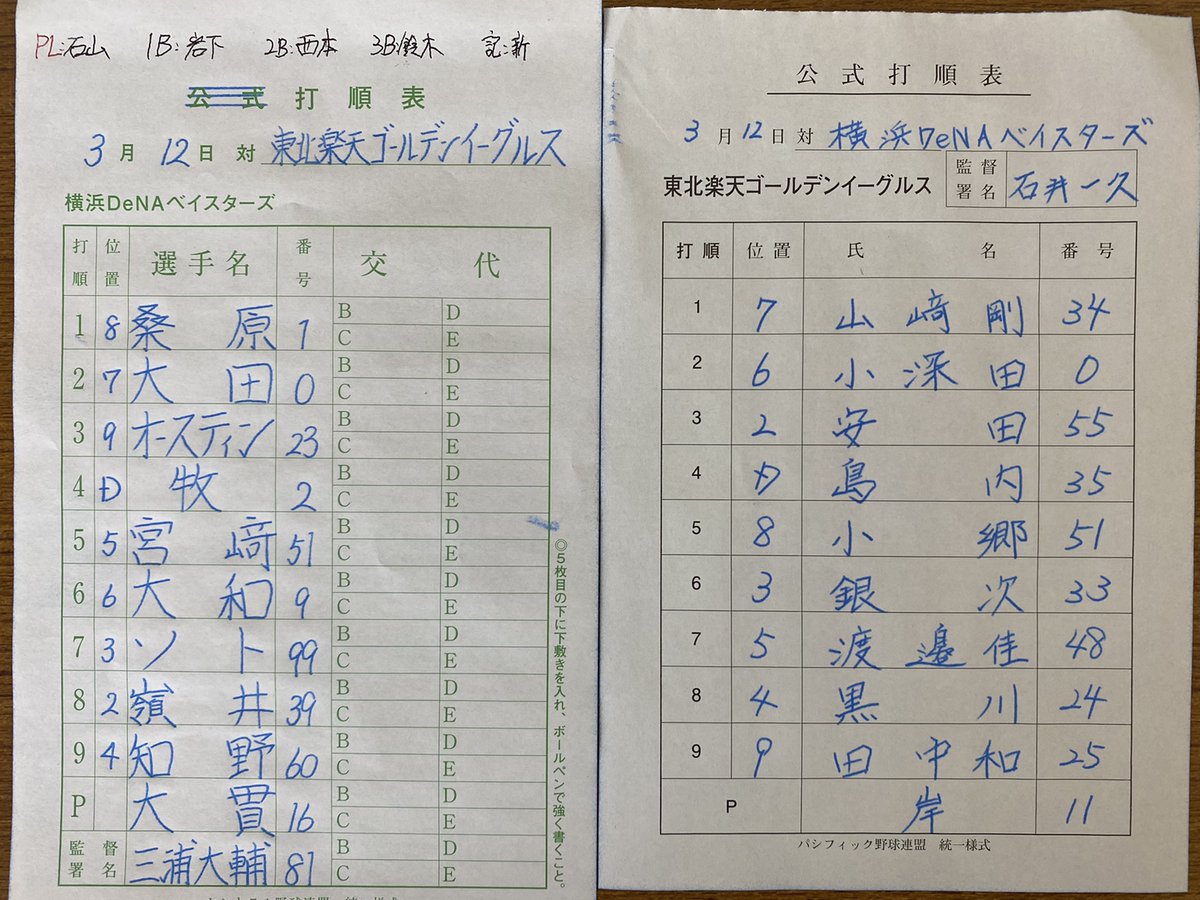 PL:石山 1B:岩下 2B:西本 3B:鈴木 記:新
公式打順表
3月12日 対 東北楽天ゴールデンイーグルス
横浜DeNAベイスターズ
打順 位置 選手名 番号 交代
1 8 桑原 1 B D
C E
2 7 大田 0 B D
C E
3 9 オースティン 23 B D
C E
4 D 牧 2 B D
C E
5 5 宮﨑 51 B D
C E
6 6 大和 9 B D
C E
7 3 ソト 99 B D
C E
8 2 嶺井 39 B D
C E
9 4 知野 60 B D
C E
P 大貫 16 B D
C E
監督署名 三浦大輔 81 B D
C E
◎5枚目の下に下敷きを入れ、ボールペンで強く書くこと。
公式打順表
3月12日 対 横浜DeNAベイスターズ
東北楽天ゴールデンイーグルス 監督署名 石井一久
打順 位置 氏名 番号
1 7 山﨑剛 34
2 6 小深田 0
3 2 安田 55
4 D 島内 35
5 8 小郷 51
6 3 銀次 33
7 5 渡邊佳 48
8 4 黒川 24
9 9 田中和 25
P 岸 11
パシフィック野球連盟 統一様式